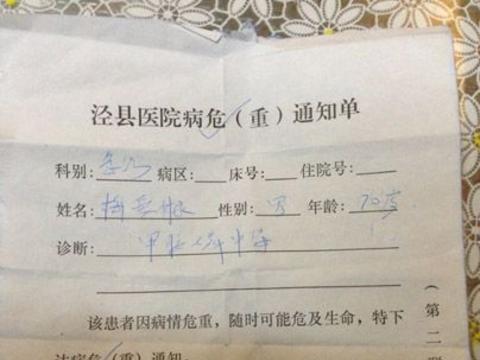 泾县医院病危(重)通知单
科别:急诊 病区: 床号: 住院号:
姓名: 性别:男 年龄:70岁
诊断:甲胺磷中毒
该患者因病情危重,随时可能危及生命,特下
达病危(重)通知。
(第二